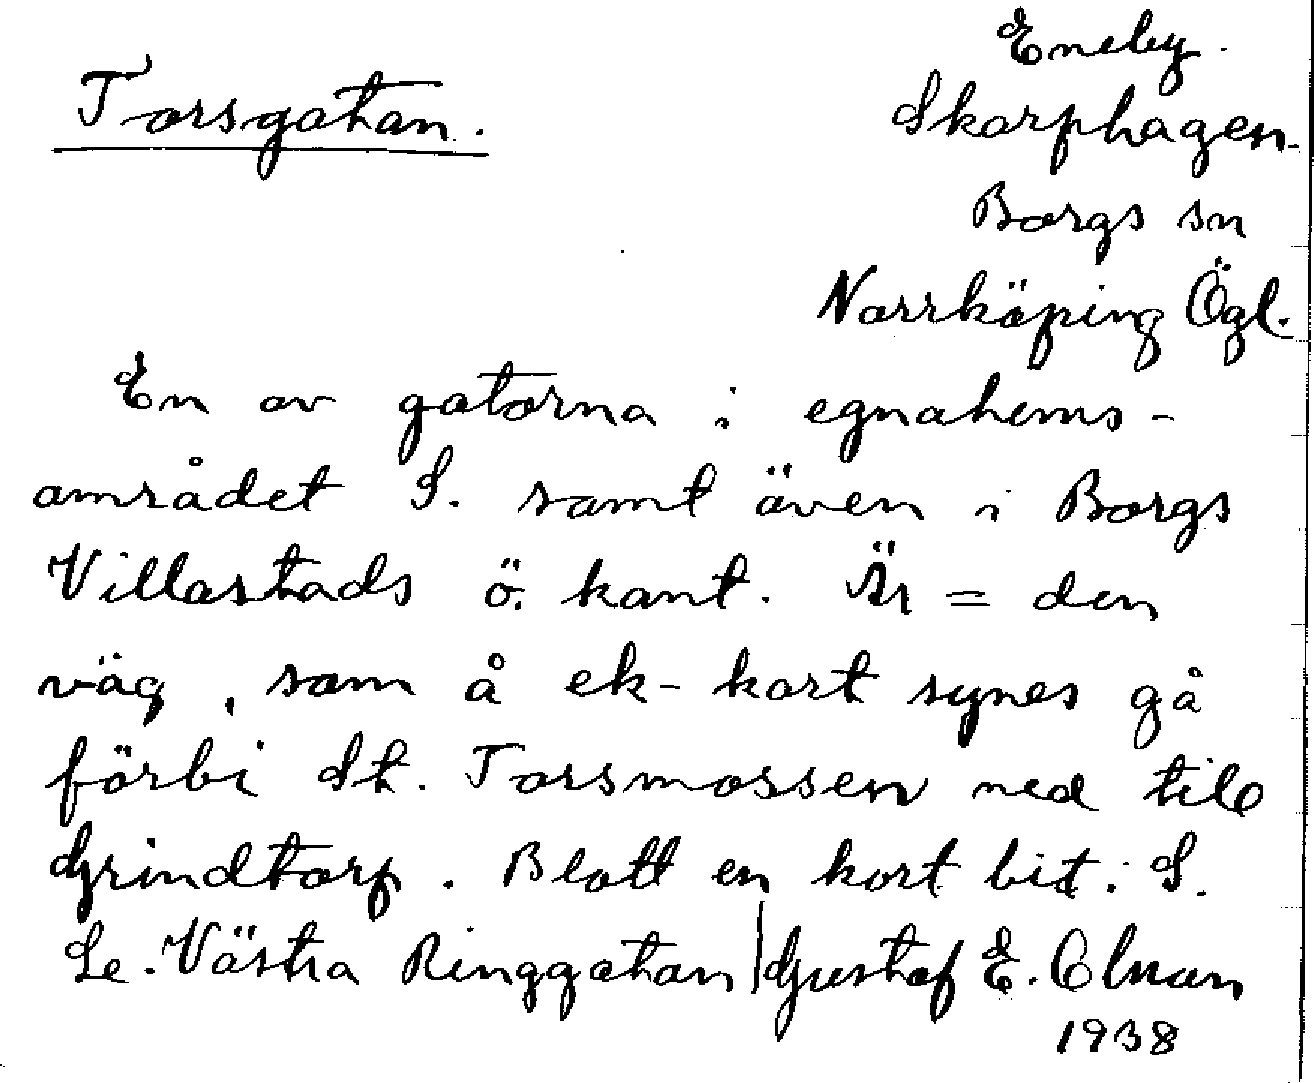 Torsgatan.
Eneby.
Skarphagen.
Borgs sn
Norrköping Ögl.
En av gatorna i egnahems-
området S. samt även i Borgs
Villastads ö. kant. Är = den
väg, som å ek-kart synes gå
förbi St. Torsmossen ned till
Grindtorp. Blott en kort bit i S.
Se. Västra Ringgatan / Gustaf E.
1938